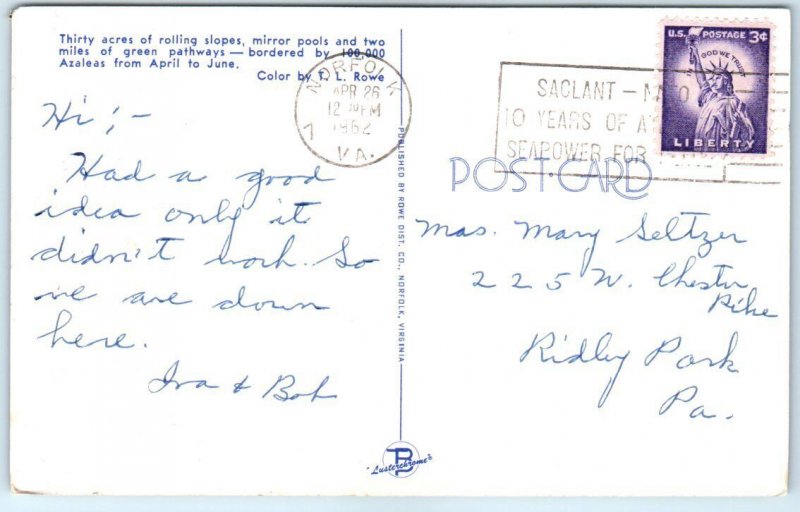 Thirty acres of rolling slopes, mirror pools and two
miles of green pathways — bordered by 100,000
Azaleas from April to June.
Color by T. L. Rowe
NORFOLK
APR 26
12 PM
1962
7
VA.
SACLANT — NATO
10 YEARS OF A
SEAPOWER FOR
U.S. POSTAGE 3¢
IN GOD WE TRUST
LIBERTY
POST CARD
PUBLISHED BY ROWE DIST. CO., NORFOLK, VIRGINIA
Hi ; –
Had a good
idea only it
didn't work. So
we are down
here.
Ira & Bob
Mrs. Mary Seltzer
225 W. Chester
Pike
Ridley Park
Pa.
"Lusterchrome"